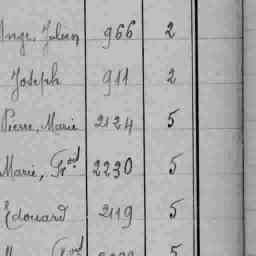 Ange, Julien 966 2
Joseph 911 2
Pierre, Marie 2124 5
Marie, Frod 2230 5
Edouard 2119 5
5